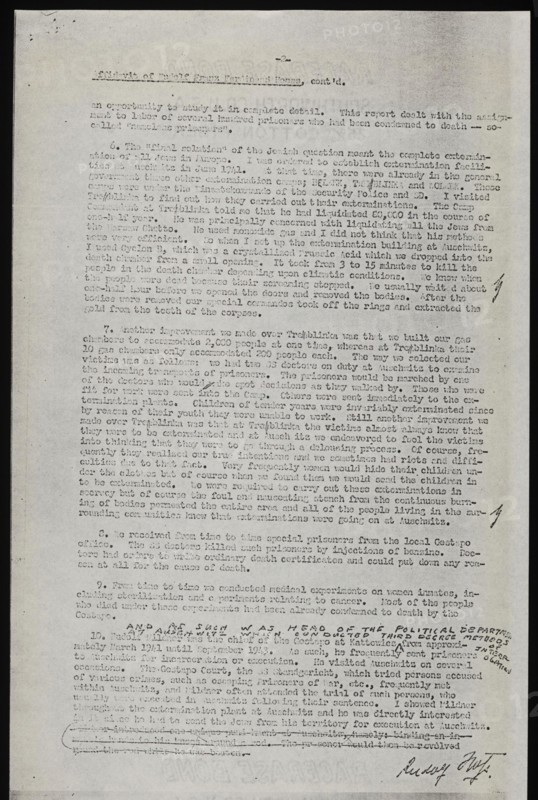 -2-
Affidavit of Rudolf Franz Ferdinand Hoess, cont'd.
an opportunity to study it in complete detail. This report dealt with the assign-
ment to labor of several hundred prisoners who had been condemned to death -- so-
called "nameless prisoners".
6. The "final solution" of the Jewish question meant the complete extermin-
ation of all Jews in Europe. I was ordered to establish extermination facili-
ties at Auschwitz in June 1941. At that time, there were already in the general
government three other extermination camps; BELZEK, TREBLINKA and WOLZEK. These
camps were under the Einsatzkommando of the Security Police and SD. I visited
Treblinka to find out how they carried out their exterminations. The Camp
Commandant at Treblinka told me that he had liquidated 80,000 in the course of
one-half year. He was principally concerned with liquidating all the Jews from
the Warsaw Ghetto. He used monoxide gas and I did not think that his methods
were very efficient. So when I set up the extermination building at Auschwitz,
I used Cyclon B, which was a crystallized Prussic Acid which we dropped into the
death chamber from a small opening. It took from 3 to 15 minutes to kill the
people in the death chamber depending upon climatic conditions. We knew when
the people were dead because their screaming stopped. We usually waited about
one-half hour before we opened the doors and removed the bodies. After the
bodies were removed our special commandos took off the rings and extracted the
gold from the teeth of the corpses.
7. Another improvement we made over Treblinka was that we built our gas
chambers to accommodate 2,000 people at one time, whereas at Treblinka their
10 gas chambers only accommodated 200 people each. The way we selected our
victims was as follows: we had two SS doctors on duty at Auschwitz to examine
the incoming transports of prisoners. The prisoners would be marched by one
of the doctors who would make spot decisions as they walked by. Those who were
fit for work were sent into the Camp. Others were sent immediately to the ex-
termination plants. Children of tender years were invariably exterminated since
by reason of their youth they were unable to work. Still another improvement we
made over Treblinka was that at Treblinka the victims almost always knew that
they were to be exterminated and at Auschwitz we endeavored to fool the victims
into thinking that they were to go through a delousing process. Of course, fre-
quently they realized our true intentions and we sometimes had riots and diffi-
culties due to that fact. Very frequently women would hide their children un-
der the clothes but of course when we found them we would send the children in
to be exterminated. We were required to carry out these exterminations in
secrecy but of course the foul and nauseating stench from the continuous burn-
ing of bodies permeated the entire area and all of the people living in the sur-
rounding communities knew that exterminations were going on at Auschwitz.
8. We received from time to time special prisoners from the local Gestapo
office. The SS doctors killed such prisoners by injections of benzine. Doc-
tors had orders to write ordinary death certificates and could put down any rea-
son at all for the cause of death.
9. From time to time we conducted medical experiments on women inmates, in-
cluding sterilization and experiments relating to cancer. Most of the people
who died under these experiments had been already condemned to death by the
Gestapo.
AND AS SUCH WAS HEAD OF THE POLITICAL DEPARTMENT
AT AUSCHWITZ WHICH CONDUCTED THIRD DEGREE METHODS
OF INTERROGATION
10. Rudolf Mildner was the chief of the Gestapo at Kattowicz from approxi-
mately March 1941 until September 1943. As such, he frequently sent prisoners
to Auschwitz for incarceration or execution. He visited Auschwitz on several
occasions. The Gestapo Court, the SS Standgericht, which tried persons accused
of various crimes, such as escaping Prisoners of War, etc., frequently met
within Auschwitz, and Mildner often attended the trial of such persons, who
usually were executed in Auschwitz following their sentence. I showed Mildner
throughout the extermination plant at Auschwitz and he was directly interested
in it since he had to send the Jews from his territory for execution at Auschwitz.
Rudolf Höß.